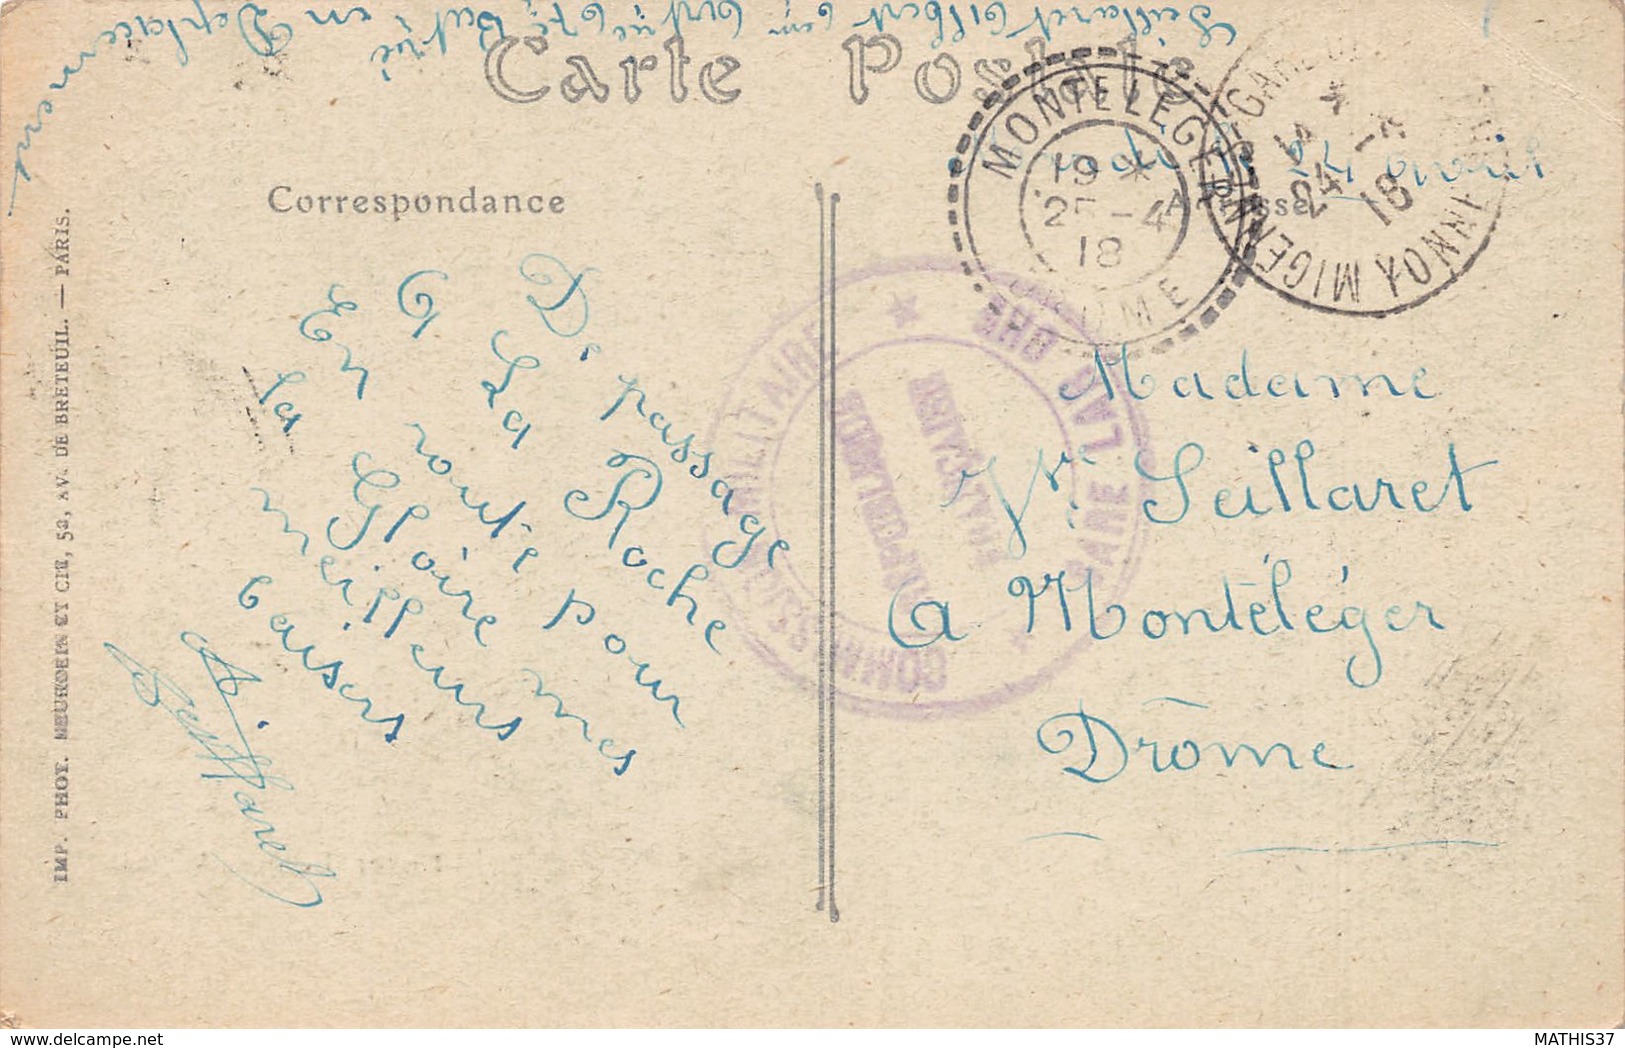 Carte Postale
Correspondance
Adresse
De passage
à La Roche
En route pour
la Gloire mes
meilleurs
baisers
Seillaret
Madame
Vve Seillaret
A Montéléger
Drôme
MONTELEGER
19 *
25-4
18
DROME
GARE DE
MIGENNES YONNE
24 -4
18
COMMISSION MILITAIRE
GARE LA
en Déplacement
IMP. PHOT. NEURDEIN ET CIE, 52, AV. DE BRETEUIL. — PARIS.
www.delcampe.net
MATHIS37